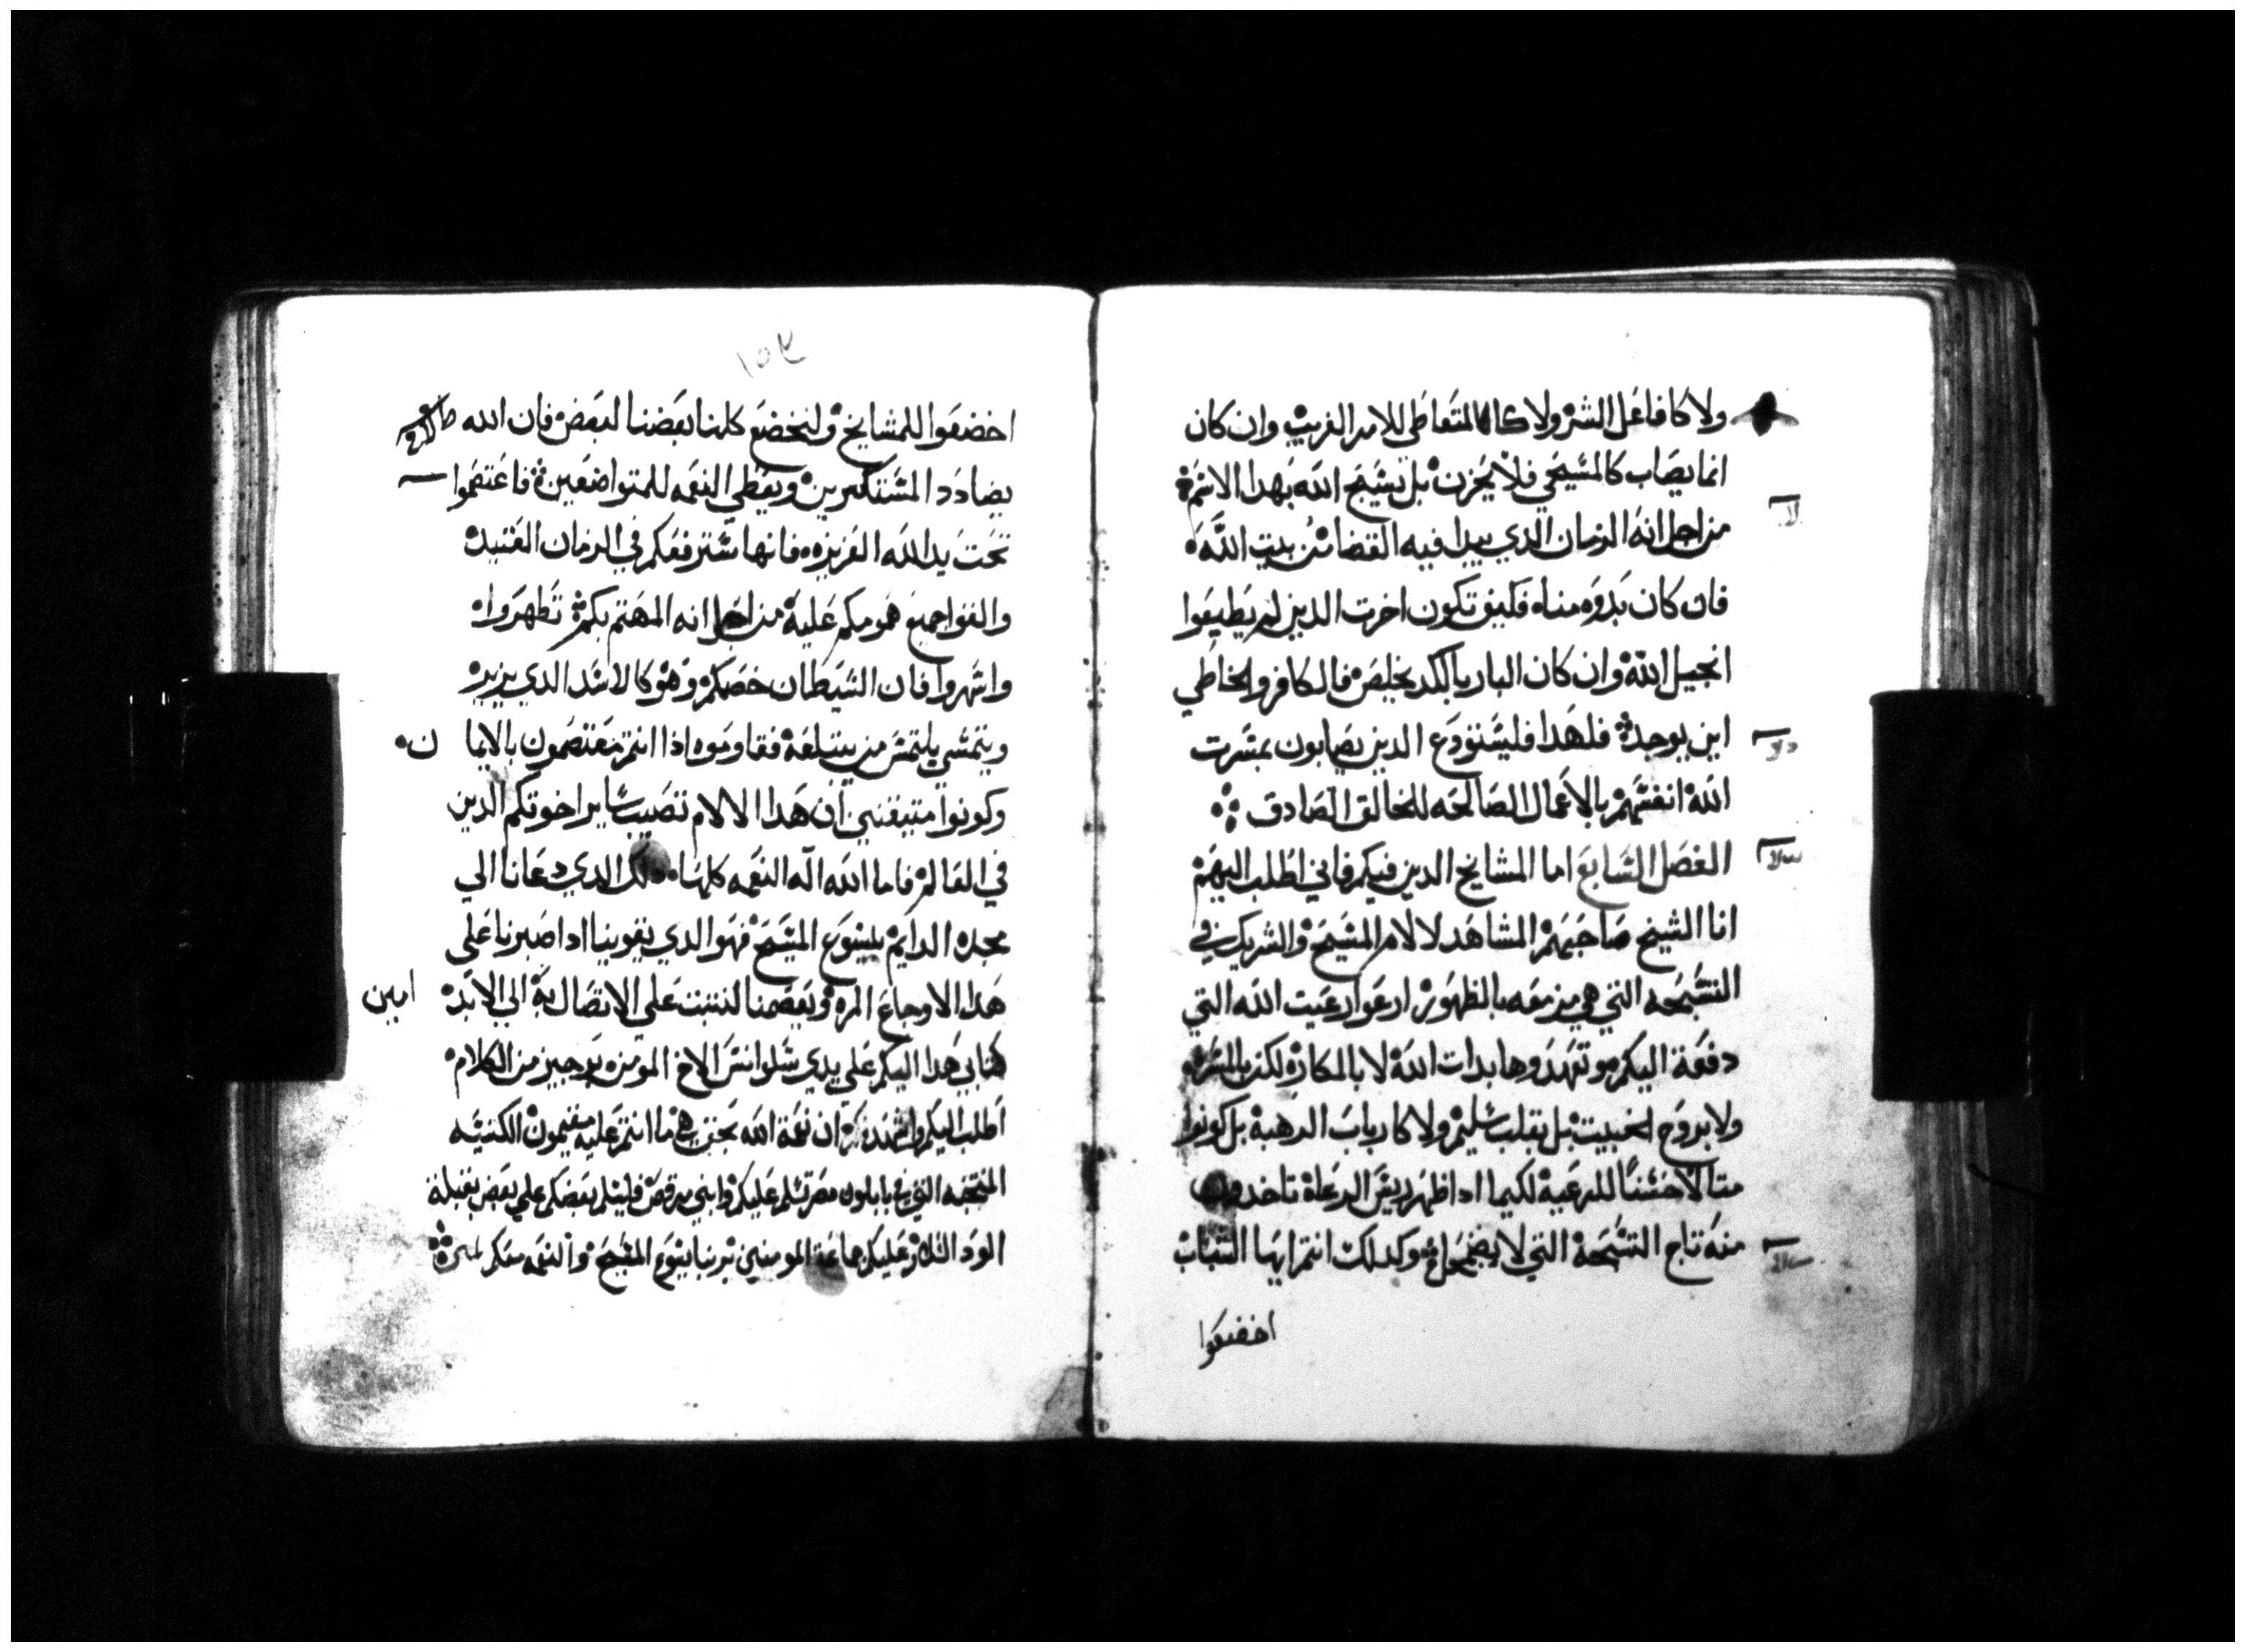 ولا كافاعل الشر ولا كالمتعاطي للامر الغريب وان كان
انما يصاب كالمسيحي فلا يحزن بل يسبح الله بهدا الاسم
من اجل انه الزمان الدي يبدا فيه القضا من بيت الله
فان كان بدوه منا فكيف تكون اخرت الدين لم يطيعوا
انجيل الله وان كان البار بالكد يخلص فالكافر والخاطي
اين يوجد فلهدا فليستودع الدين يصابون بمشرت
الله انفسهم بالاعمال الصالحه للخالق الصادق
الفصل السابع اما المشايخ الدين فيكم فاني اطلب اليهم
انا الشيخ صاحبهم المشاهد لالام المسيح والشريك في
التسبحه التي هي مزمعه بالظهور ارعوا رعيت الله التي
دفعة اليكم وتعهدوها بدات الله لا بالمكاره لكن بالمسره
ولا بروح الخبيت بل بقلب سليم ولا كارباب الدهبة بل كونوا
متالا حسنا للرعية لكيما ادا ظهر ريس الرعاة تاخدون
منه تاج التسبحة التي لا يضمحل وكدلك انتم ايها الشباب
اخضعوا
١٥٤
اخضعوا للمشايخ ولنخضع كلنا بعضنا لبعض فان الله
يضادد المستكبرين ويعطي النعمه للمتواضعين فاعتصموا
تحت يد الله العزيزه فانها سترفعكم في الزمان العتيد
والقوا جميع همومكم عليه من اجل انه المهتم بكم تطهروا
واسهروا فان الشيطان خصمكم وهو كالاسد الدي يزير
ويتمشي يلتمس من يبتلعه فقاوموه اذا انتم معتصمون بالايمان
وكونوا متيقنين ان هدا الالام تصيب ساير اخوتكم الدين
في العالم فاما الله اله النعمه كلها دلك الدي دعانا الي
مجده الدايم بيسوع المسيح فهو الدي يقوينا ادا صبرنا علي
هدا الاوجاع المره ويعصمنا لنتبت علي الاتصال به الي الابد امين
كتابي هدا اليكم علي يدي سلوانس الاخ المومن بوجيز من الكلام
اطلب اليكم واشهد ان نعمة الله بحق هي ما انتم عليه مقيمون الكنيسه
المنتخبه التي في بابلون مصر تسلم عليكم وابني مرقص فليسلم بعضكم علي بعض بقبلة
الود السلام عليكم جماعة المومنين بربنا يسوع المسيح والنعمه معكم